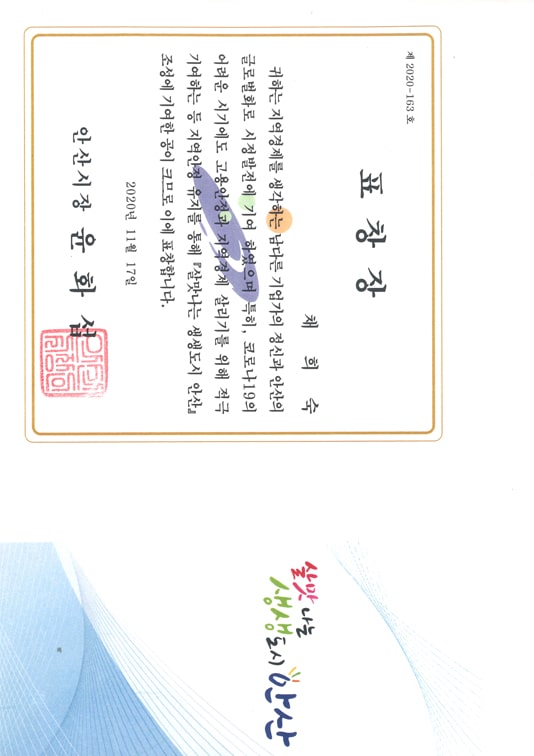 제 2020-163 호
표 창 장
채 희 숙
귀하는 지역경제를 생각하는 남다른 기업가의 정신과 안산의
글로벌화로 시정발전에 기여 하였으며 특히, 코로나19의
어려운 시기에도 고용안정과 지역경제 살리기를 위해 적극
기여하는 등 지역안정 유지를 통해 『살맛나는 생생도시 안산』
조성에 기여한 공이 크므로 이에 표창합니다.
2020년 11월 17일
안산시장 윤 화 섭
살맛나는
생생도시 안산